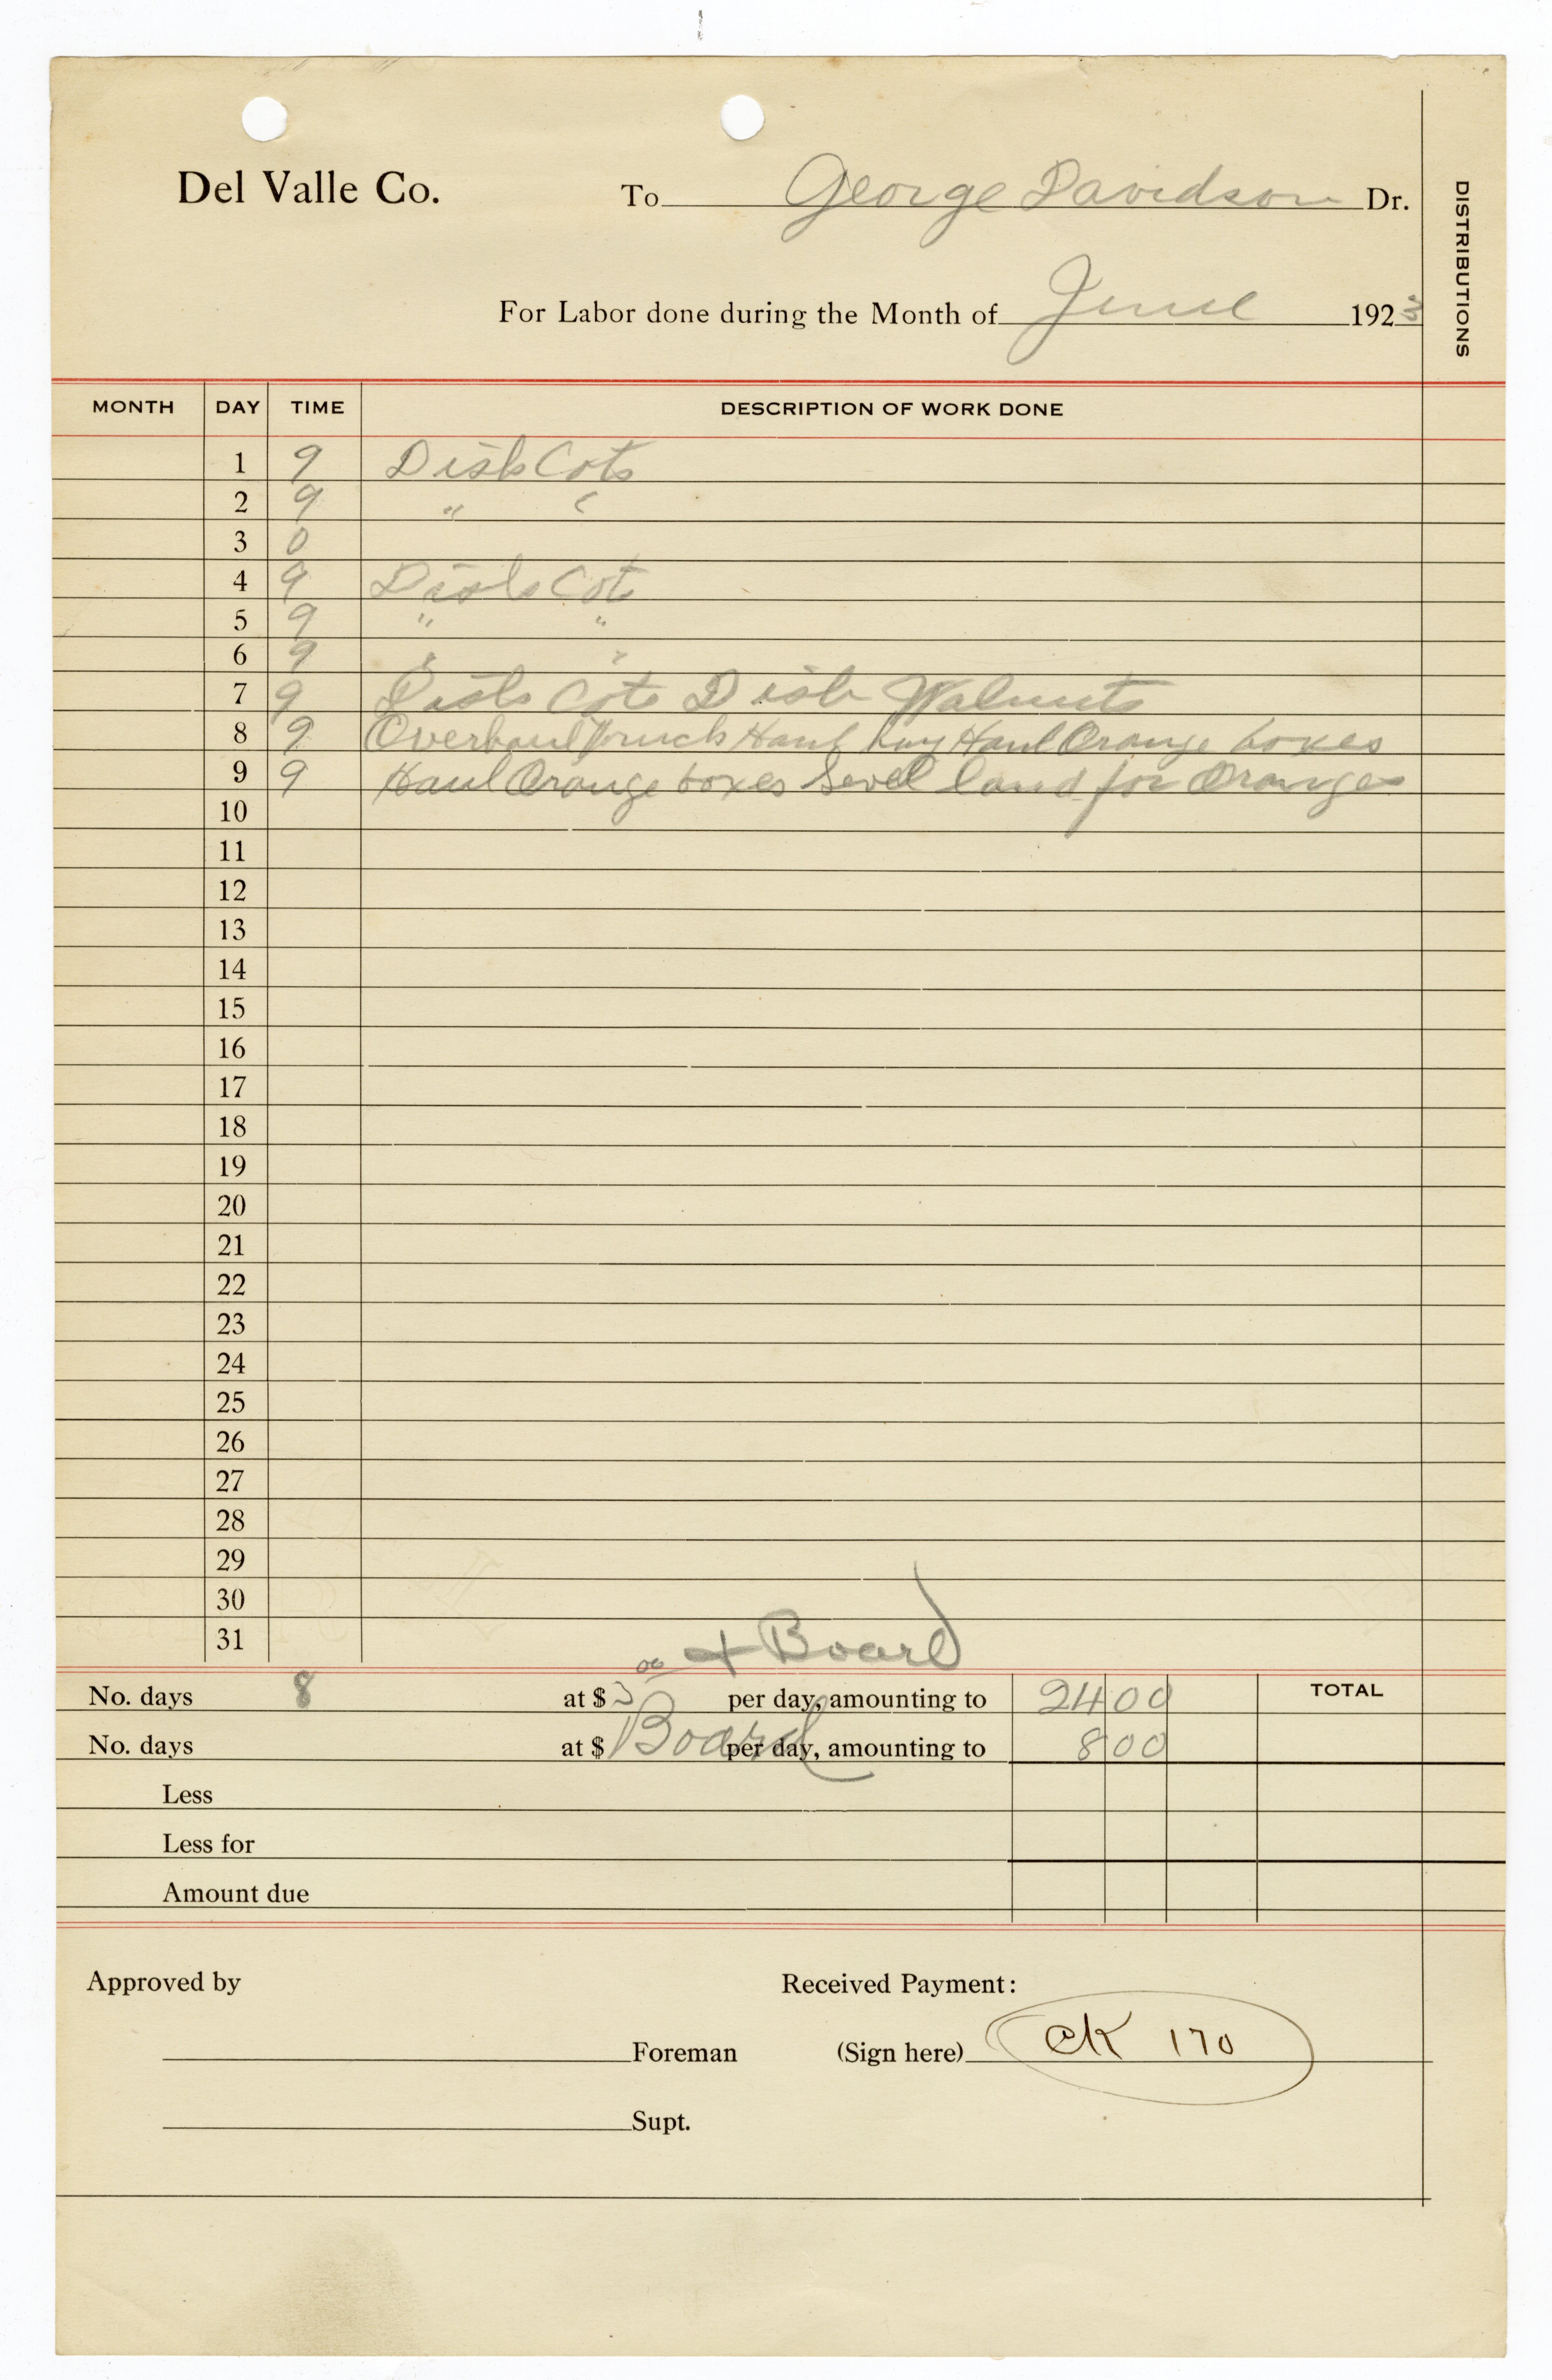 Del Valle Co. To George Davidson Dr.
DISTRIBUTIONS
For Labor done during the Month of June 1923
MONTH DAY TIME DESCRIPTION OF WORK DONE
1 9 Disk Cots
2 9 " "
3 0
4 9 Disk Cots
5 9 " "
6 9 " "
7 9 Disk Cots Disk Walnuts
8 9 Overhaul Truck Haul hay Haul Orange boxes
9 9 Haul Orange boxes Level land for Oranges
10
11
12
13
14
15
16
17
18
19
20
21
22
23
24
25
26
27
28
29
30
31
+ Board
No. days 8 at $ 3 00 per day, amounting to 24 00 TOTAL
No. days at $ Board per day, amounting to 8 00
Less
Less for
Amount due
Approved by Received Payment:
Foreman (Sign here) CK 170
Supt.